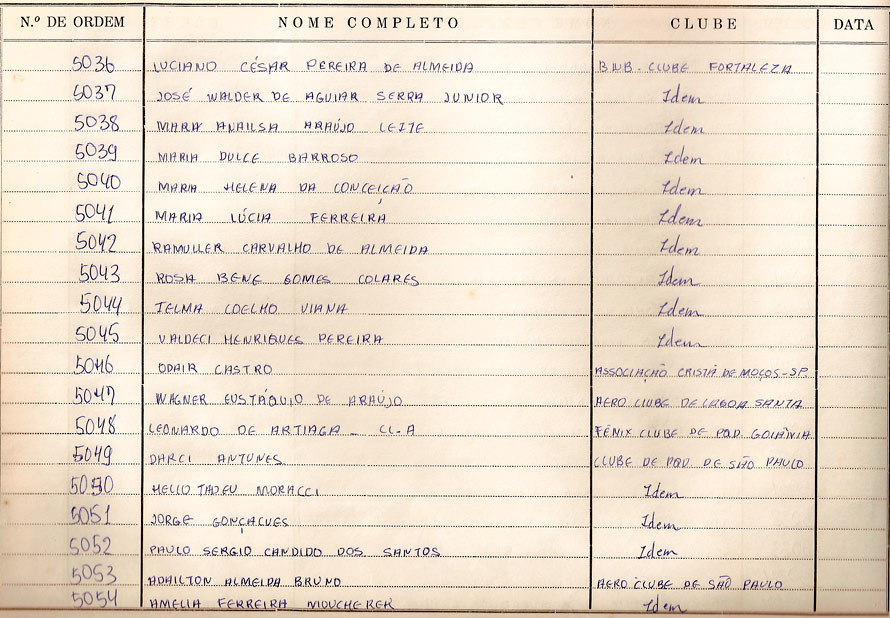 N.º DE ORDEM NOME COMPLETO CLUBE DATA
5036 LUCIANO CÉSAR PEREIRA DE ALMEIDA B.N.B. CLUBE FORTALEZA
5037 JOSÉ WALDER DE AGUIAR SERRA JUNIOR Idem
5038 MARIA ANAILSA ARAÚJO LEITE Idem
5039 MARIA DULCE BARROSO Idem
5040 MARIA HELENA DA CONCEIÇÃO Idem
5041 MARIA LÚCIA FERREIRA Idem
5042 RAMULLER CARVALHO DE ALMEIDA Idem
5043 ROSA BENE GOMES COLARES Idem
5044 TELMA COELHO VIANA Idem
5045 VALDECI HENRIQUES PEREIRA Idem
5046 ODAIR CASTRO ASSOCIAÇÃO CRISTÃ DE MOÇOS-SP
5047 WAGNER EUSTÁQUIO DE ARAÚJO AERO CLUBE DE LAGOA SANTA
5048 LEONARDO DE ARTIAGA - CL-A FÊNIX CLUBE DE PQD. GOIÂNIA
5049 DARCI ANTUNES CLUBE DE PQD. DE SÃO PAULO
5050 HELIO TADEU MORACCI Idem
5051 JORGE GONÇALVES Idem
5052 PAULO SERGIO CANDIDO DOS SANTOS Idem
5053 ADAILTON ALMEIDA BRUNO AERO CLUBE DE SÃO PAULO
5054 AMELIA FERREIRA MOUCHERER Idem